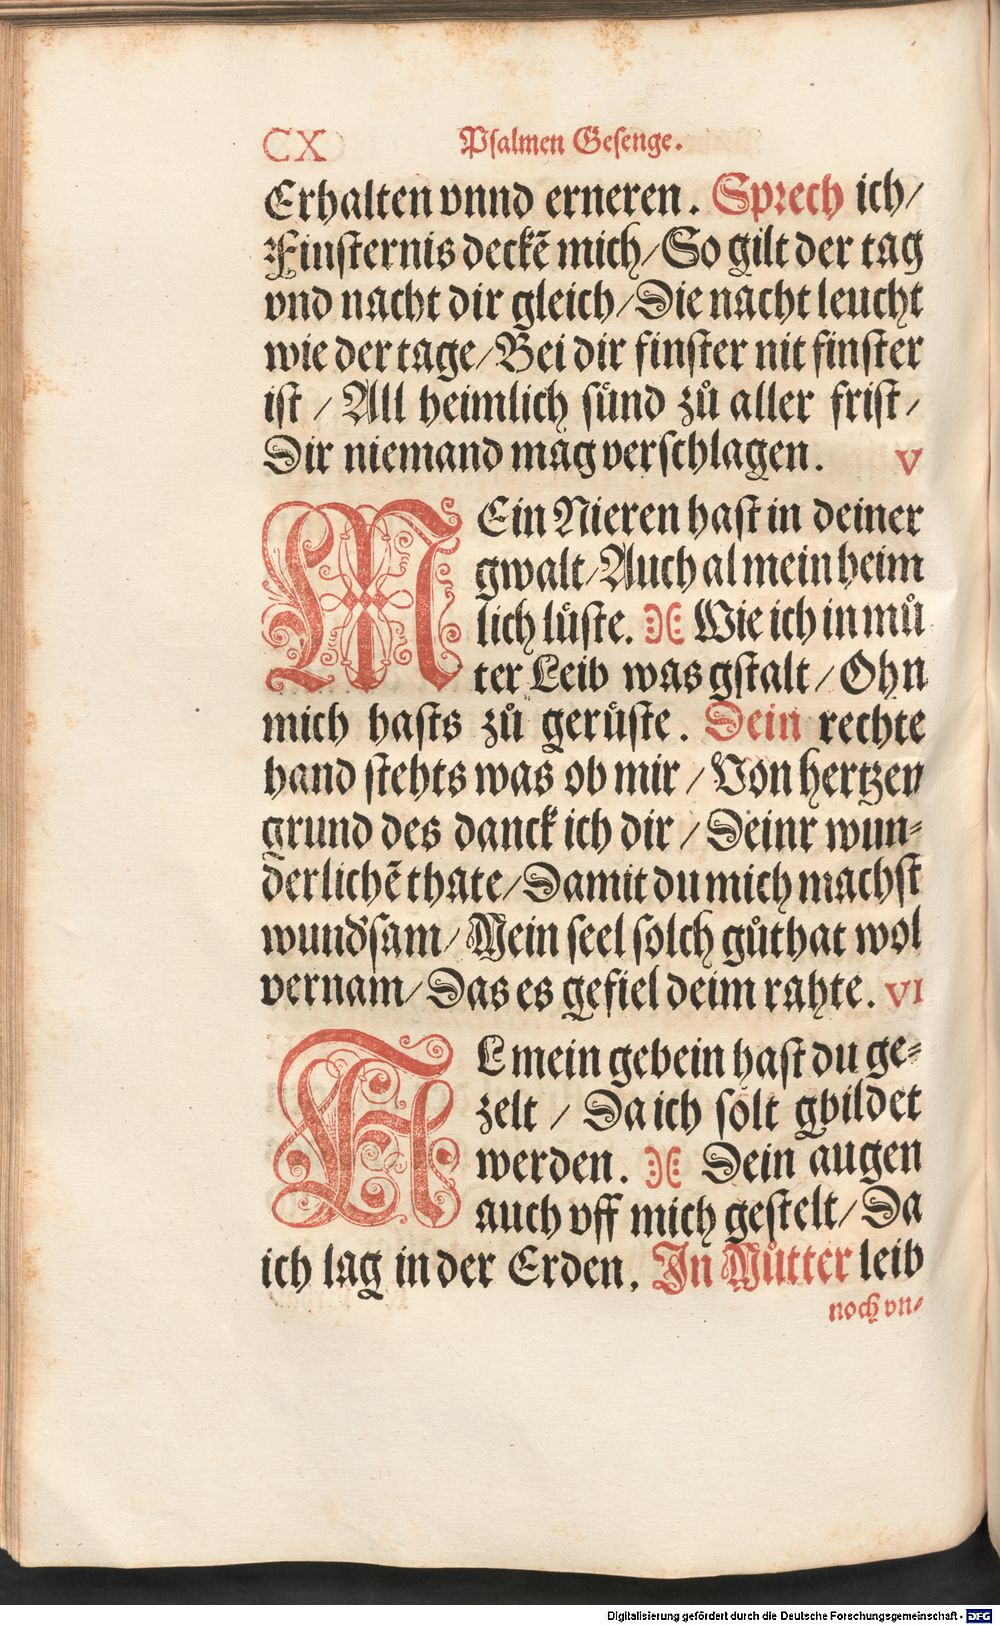 CX Psalmen Gesenge.
Erhalten vnnd erneren. Sprech ich/
Finsternis deckẽ mich/ So gilt der tag
vnd nacht dir gleich/ Die nacht leucht
wie der tage/ Bei dir finster nit finster
ist / All heimlich sünd zů aller frist/
Dir niemand mag verschlagen. V
MEin Nieren hast in deiner
gwalt/ Auch al mein heim
lich lüste. Wie ich in mů
ter Leib was gstalt/ Ohn
mich hasts zů gerüste. Dein rechte
hand stehts was ob mir / Von hertzen
grund des danck ich dir / Deinr wun⸗
derlichẽ thate/ Damit du mich machst
wundsam/ Mein seel solch gůthat wol
vernam/ Das es gefiel deim rahte. VI
AL mein gebein hast du ge⸗
zelt / Da ich solt gbildet
werden. Dein augen
auch vff mich gestelt/ Da
ich lag in der Erden. In Můtter leib
noch vn⸗
Digitalisierung gefördert durch die Deutsche Forschungsgemeinschaft - DFG